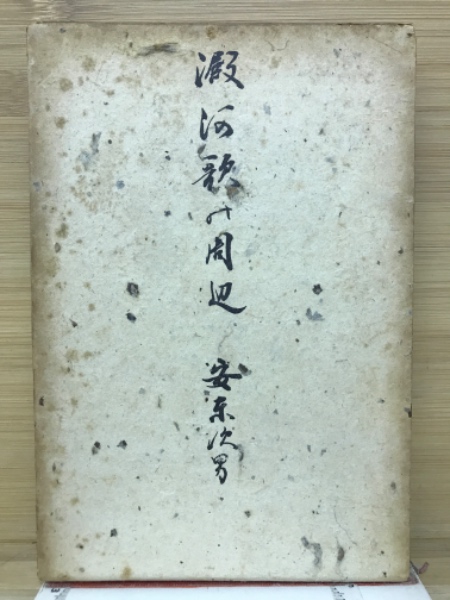 澱河歌の周辺
安東次男